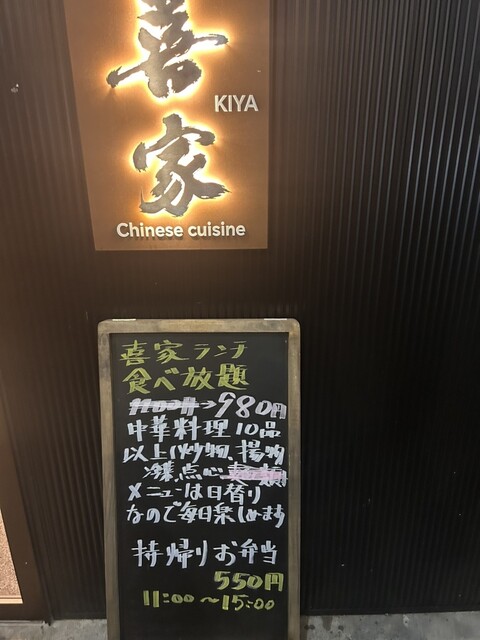 喜
KIYA
家
Chinese cuisine
喜家ランチ
食べ放題
1100円→980円
中華料理10品
以上(炒物、揚物
点心
メニューは日替り
なので毎日楽しめます
持帰りお弁当
550円
11:00〜15:00